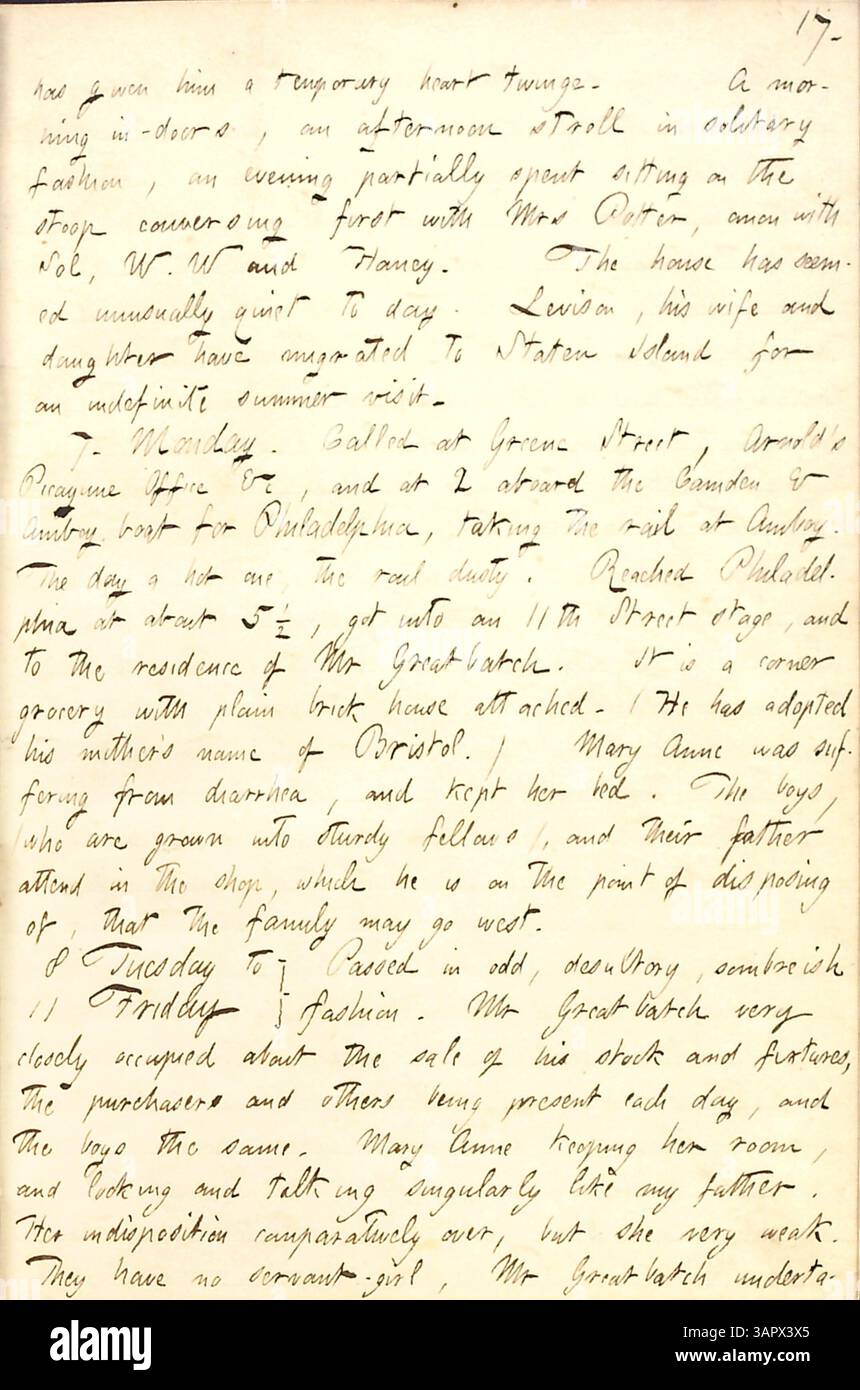 17.
has given him a temporary heart twinge. A mor-
ning in-doors, an afternoon stroll in solitary
fashion, an evening partially spent sitting on the
stoop conversing first with Mrs Potter, anon with
Sol, W. W and Haney. The house has seem-
ed unusually quiet to day. Levison, his wife and
daughter have migrated to Staten Island for
an indefinite summer visit.
7. Monday. Called at Greene Street, Arnold's
Picayune Office &c, and at 2 aboard the Camden &
Amboy boat for Philadelphia, taking the rail at Amboy.
The day a hot one, the rail dusty. Reached Philadel-
phia at about 5 ½, got into an 11th Street stage, and
to the residence of Mr Greatbatch. It is a corner
grocery with plain brick house attached. (He has adopted
his mother's name of Bristol.) Mary Anne was suf-
fering from diarrhea, and kept her bed. The boys,
(who are grown into sturdy fellows), and their father
attend in the shop, which he is on the point of disposing
of, that the family may go west.
8 Tuesday to } Passed in odd, desultory, sombreish
11 Friday } fashion. Mr Greatbatch very
closely occupied about the sale of his stock and fixtures,
the purchasers and others being present each day, and
the boys the same. Mary Anne keeping her room,
and looking and talking singularly like my father.
Her indisposition comparatively over, but she very weak.
They have no servant-girl, Mr Greatbatch underta-
alamy
Image ID: 3APX3X5
www.alamy.com